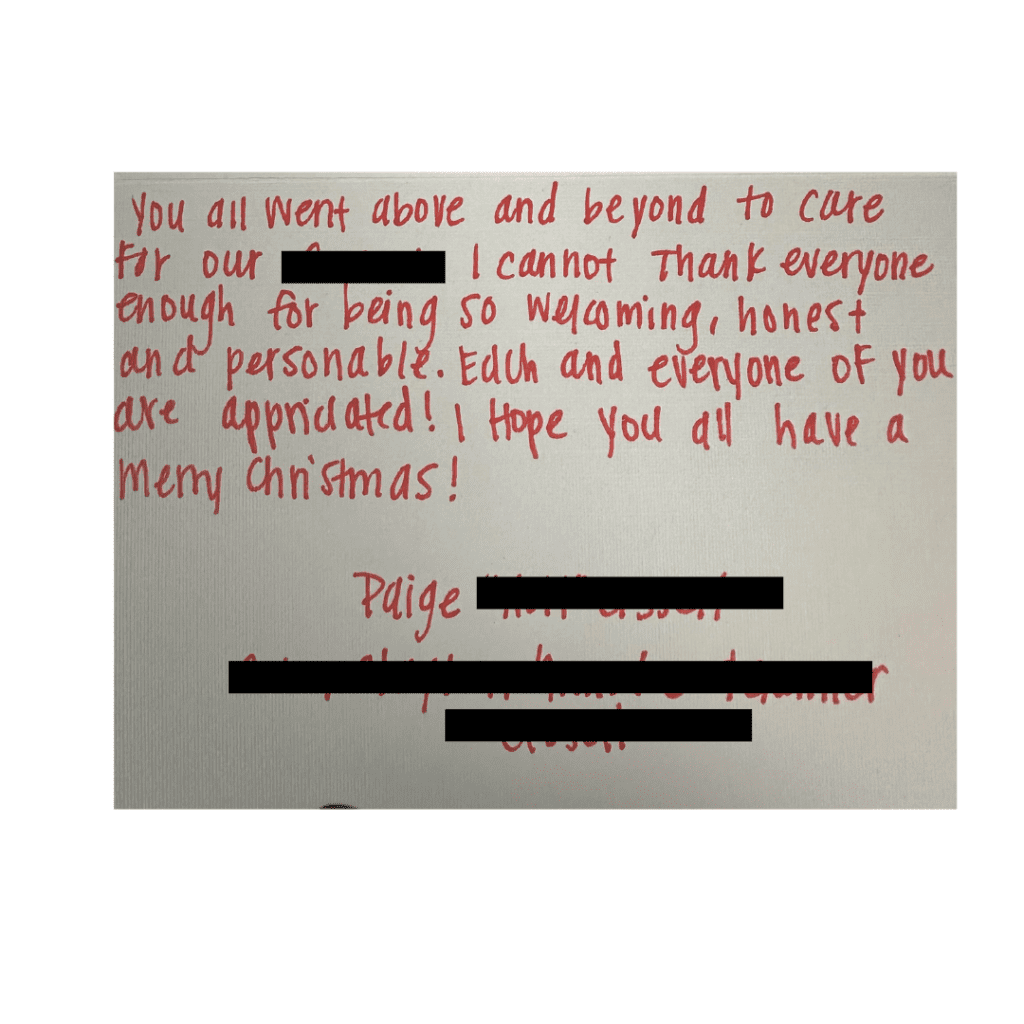 You all went above and beyond to care
for our I cannot Thank everyone
enough for being so welcoming, honest
and personable. Each and everyone of you
are appriciated! I Hope you all have a
Merry Christmas!
Paige